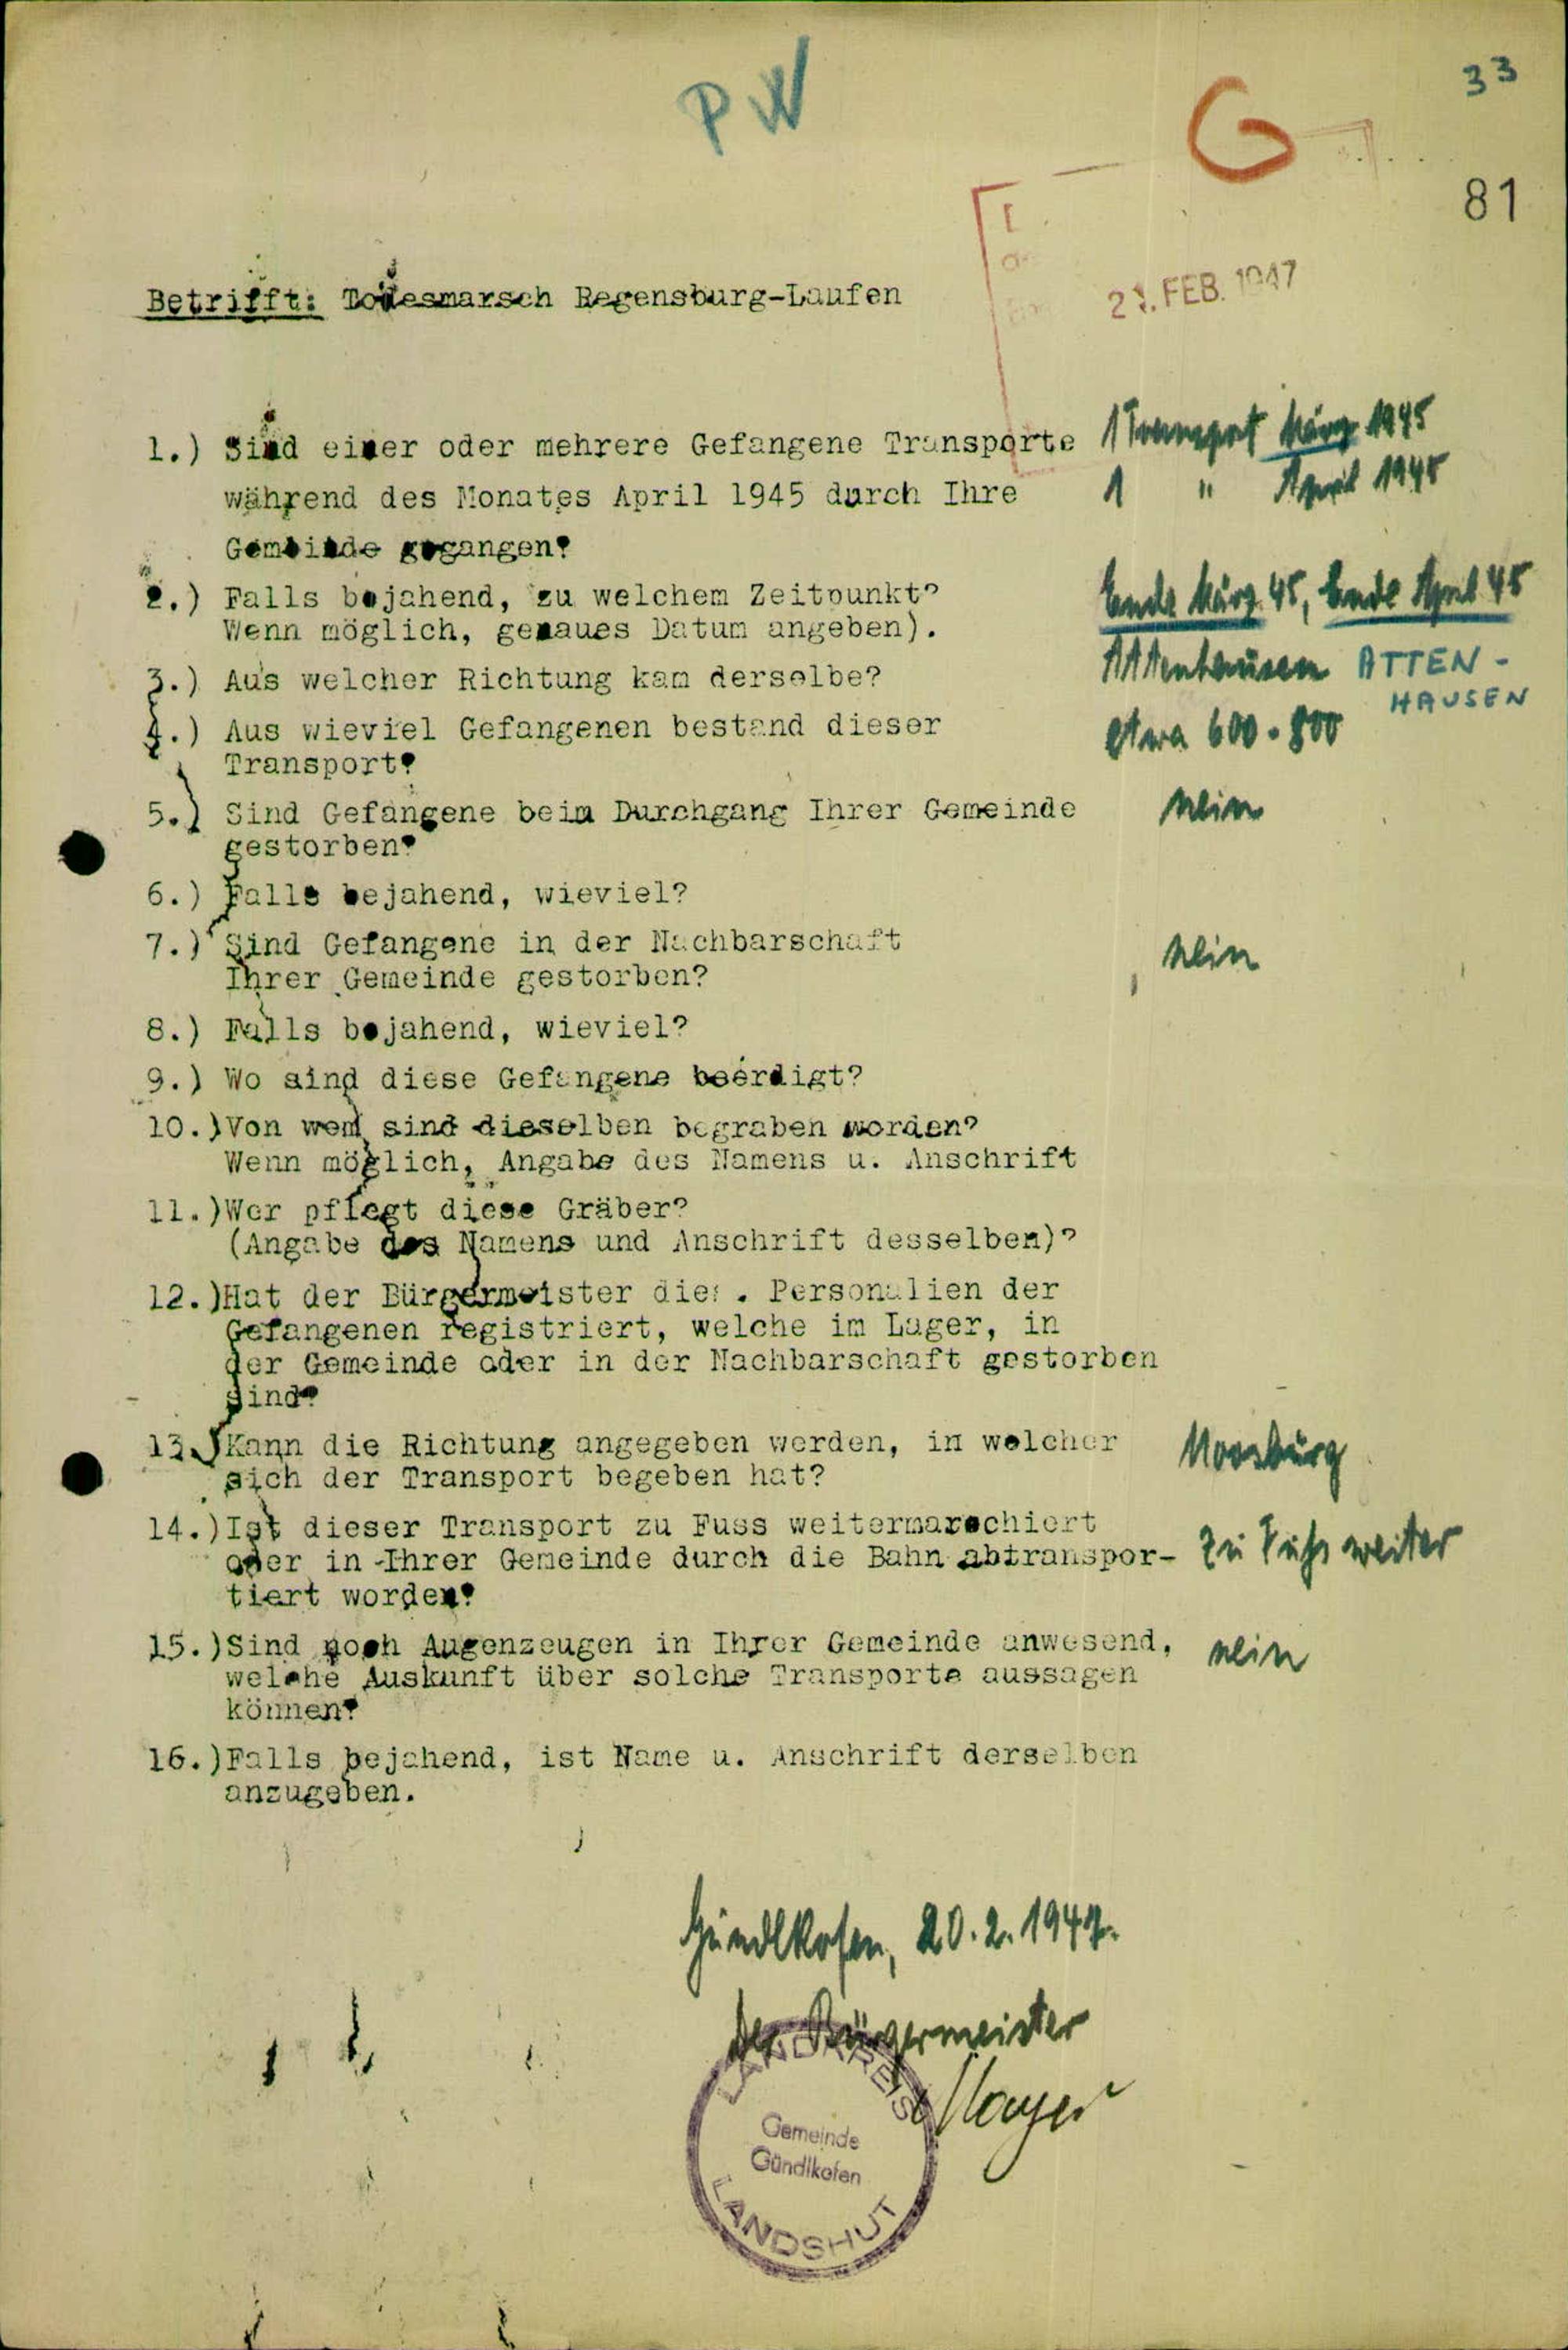 PW
G
33
81
21. FEB. 1947
Betrifft: Todesmarsch Regensburg-Laufen
1.) Sind einer oder mehrere Gefangene Transporte 1 Transport März 1945
während des Monates April 1945 durch Ihre 1 " April 1945
Gemeinde gegangen?
2.) Falls bejahend, zu welchem Zeitpunkt? Ende März 45, Ende April 45
Wenn möglich, genaues Datum angeben).
3.) Aus welcher Richtung kam derselbe? Attenhausen ATTEN-
HAUSEN
4.) Aus wieviel Gefangenen bestand dieser etwa 600-800
Transport?
5.) Sind Gefangene beim Durchgang Ihrer Gemeinde nein
gestorben?
6.) Falls bejahend, wieviel?
7.) Sind Gefangene in der Nachbarschaft nein
Ihrer Gemeinde gestorben?
8.) Falls bejahend, wieviel?
9.) Wo sind diese Gefangene beerdigt?
10.) Von wem sind dieselben begraben worden?
Wenn möglich, Angabe des Namens u. Anschrift
11.) Wer pflegt diese Gräber?
(Angabe des Namens und Anschrift desselben)?
12.) Hat der Bürgermeister die . Personalien der
Gefangenen registriert, welche im Lager, in
der Gemeinde oder in der Nachbarschaft gestorben
sind?
13.) Kann die Richtung angegeben werden, in welcher Moosburg
sich der Transport begeben hat?
14.) Ist dieser Transport zu Fuss weitermarschiert
oder in Ihrer Gemeinde durch die Bahn abtranspor- zu Fuß weiter
tiert worden?
15.) Sind noch Augenzeugen in Ihrer Gemeinde anwesend, nein
welche Auskunft über solche Transporte aussagen
können?
16.) Falls bejahend, ist Name u. Anschrift derselben
anzugeben.
Gündlkofen, 20.2.1947.
Der Bürgermeister
Mayer
LANDKREIS
Gemeinde
Gündlkofen
LANDSHUT